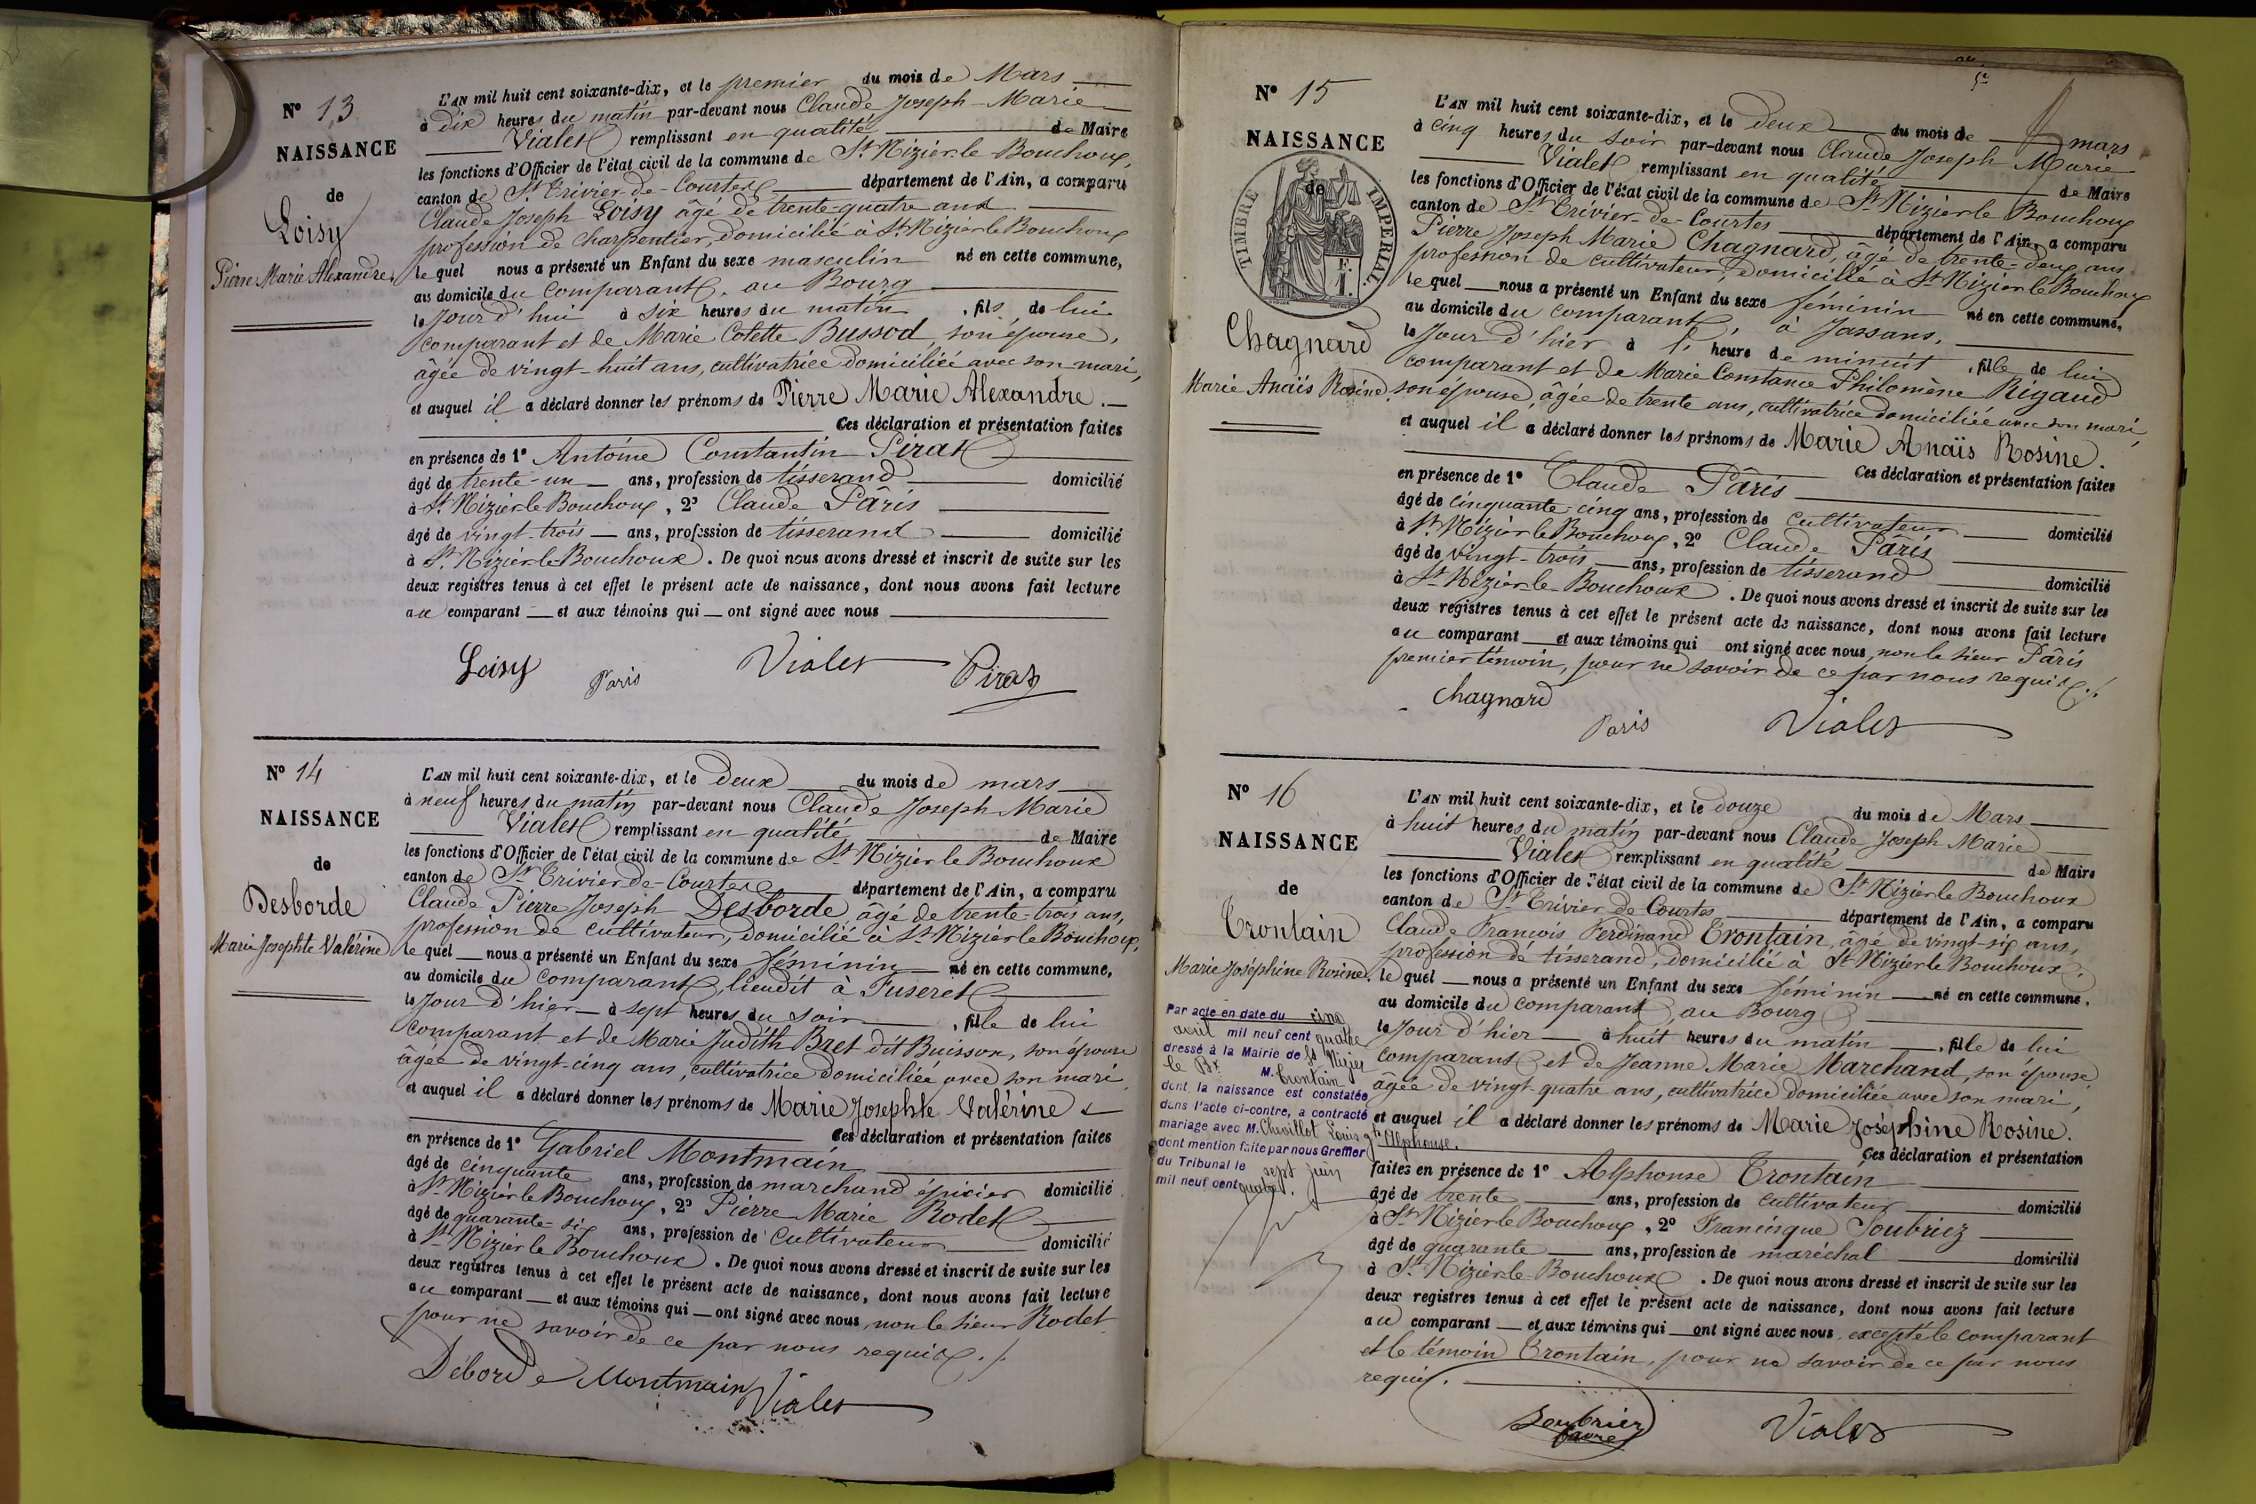 N° 13
NAISSANCE
de
Loisy
Pierre Marie Alexandre
L'AN mil huit cent soixante-dix, et le premier du mois de Mars
à dix heures du matin par-devant nous Claude Joseph Marie
Vialet remplissant en qualité de Maire
les fonctions d'Officier de l'état civil de la commune de St Nizier le Bouchoux,
canton de St Trivier de Courtes département de l'Ain, a comparu
Claude Joseph Loisy âgé de trente-quatre ans
profession de charpentier, domicilié à St Nizier le Bouchoux
lequel nous a présenté un Enfant du sexe masculin né en cette commune,
au domicile du comparant, au Bourg
le jour d'hui à six heures du matin, fils de lui
comparant et de Marie Colette Bussod, son épouse,
âgée de vingt-huit ans, cultivatrice domiciliée avec son mari,
et auquel il a déclaré donner les prénoms de Pierre Marie Alexandre.
Ces déclaration et présentation faites
en présence de 1° Antoine Constantin Pirat
âgé de trente-un ans, profession de tisserand domicilié
à St Nizier le Bouchoux, 2° Claude Pâris
âgé de vingt-trois ans, profession de tisserand domicilié
à St Nizier le Bouchoux. De quoi nous avons dressé et inscrit de suite sur les
deux registres tenus à cet effet le présent acte de naissance, dont nous avons fait lecture
au comparant et aux témoins qui ont signé avec nous
Loisy Paris Vialet Pirat
N° 14
NAISSANCE
de
Desborde
Marie Josephte Valérine
L'AN mil huit cent soixante-dix, et le deux du mois de mars
à neuf heures du matin par-devant nous Claude Joseph Marie
Vialet remplissant en qualité de Maire
les fonctions d'Officier de l'état civil de la commune de St Nizier le Bouchoux
canton de St Trivier de Courtes département de l'Ain, a comparu
Claude Pierre Joseph Desborde, âgé de trente-trois ans,
profession de cultivateur, domicilié à St Nizier le Bouchoux,
lequel nous a présenté un Enfant du sexe féminin né en cette commune,
au domicile du comparant, lieudit à Fuseret
le jour d'hier à sept heures du soir, fille de lui
comparant et de Marie Judith Bret dit Buisson, son épouse
âgée de vingt-cinq ans, cultivatrice domiciliée avec son mari,
et auquel il a déclaré donner les prénoms de Marie Josephte Valérine
Ces déclaration et présentation faites
en présence de 1° Gabriel Montmain
âgé de cinquante ans, profession de marchand épicier domicilié
à St Nizier le Bouchoux, 2° Pierre Marie Rodet
âgé de quarante-six ans, profession de cultivateur domicilié
à St Nizier le Bouchoux. De quoi nous avons dressé et inscrit de suite sur les
deux registres tenus à cet effet le présent acte de naissance, dont nous avons fait lecture
au comparant et aux témoins qui ont signé avec nous, non le sieur Rodet
pour ne savoir de ce par nous requis.
Déborde Montmain Vialet
N° 15
NAISSANCE
de
TIMBRE IMPERIAL
Chagnard
Marie Anaïs Rosine
L'AN mil huit cent soixante-dix, et le deux du mois de mars
à cinq heures du soir par-devant nous Claude Joseph Marie
Vialet remplissant en qualité de Maire
les fonctions d'Officier de l'état civil de la commune de St Nizier le Bouchoux
canton de St Trivier de Courtes département de l'Ain, a comparu
Pierre Joseph Marie Chagnard, âgé de trente-deux ans
profession de cultivateur, domicilié à St Nizier le Bouchoux
lequel nous a présenté un Enfant du sexe féminin né en cette commune,
au domicile du comparant, à Jassans,
le jour d'hier à l' heure de minuit, fille de lui
comparant et de Marie Constance Philomène Rigaud
son épouse, âgée de trente ans, cultivatrice domiciliée avec son mari,
et auquel il a déclaré donner les prénoms de Marie Anaïs Rosine.
Ces déclaration et présentation faites
en présence de 1° Claude Pâris
âgé de cinquante-cinq ans, profession de cultivateur domicilié
à St Nizier le Bouchoux, 2° Claude Pâris
âgé de vingt-trois ans, profession de tisserand domicilié
à St Nizier le Bouchoux. De quoi nous avons dressé et inscrit de suite sur les
deux registres tenus à cet effet le présent acte de naissance, dont nous avons fait lecture
au comparant et aux témoins qui ont signé avec nous, non le sieur Pâris
premier témoin, pour ne savoir de ce par nous requis.
Chagnard Paris Vialet
N° 16
NAISSANCE
de
Trontain
Marie Joséphine Rosine.
Par acte en date du cinq
avril mil neuf cent quatre
dressé à la Mairie de St Nizier
le Bx M. Trontain
dont la naissance est constatée
dans l'acte ci-contre, a contracté
mariage avec M. Chevillot Louis
Alphonse.
dont mention faite par nous Greffier
du Tribunal le sept juin
mil neuf cent quatre.
L'AN mil huit cent soixante-dix, et le douze du mois de Mars
à huit heures du matin par-devant nous Claude Joseph Marie
Vialet remplissant en qualité de Maire
les fonctions d'Officier de l'état civil de la commune de St Nizier le Bouchoux
canton de St Trivier de Courtes département de l'Ain, a comparu
Claude François Ferdinand Trontain, âgé de vingt-six ans,
profession de tisserand, domicilié à St Nizier le Bouchoux,
lequel nous a présenté un Enfant du sexe féminin né en cette commune,
au domicile du comparant, au Bourg
le jour d'hier à huit heures du matin, fille de lui
comparant et de Jeanne Marie Marchand, son épouse
âgée de vingt-quatre ans, cultivatrice domiciliée avec son mari,
et auquel il a déclaré donner les prénoms de Marie Joséphine Rosine.
Ces déclaration et présentation
faites en présence de 1° Alphonse Trontain
âgé de trente ans, profession de cultivateur domicilié
à St Nizier le Bouchoux, 2° Francisque Soubriez
âgé de quarante ans, profession de maréchal domicilié
à St Nizier le Bouchoux. De quoi nous avons dressé et inscrit de suite sur les
deux registres tenus à cet effet le présent acte de naissance, dont nous avons fait lecture
au comparant et aux témoins qui ont signé avec nous, excepté le comparant
et le témoin Trontain, pour ne savoir de ce par nous
requis.
Soubriez Vialet